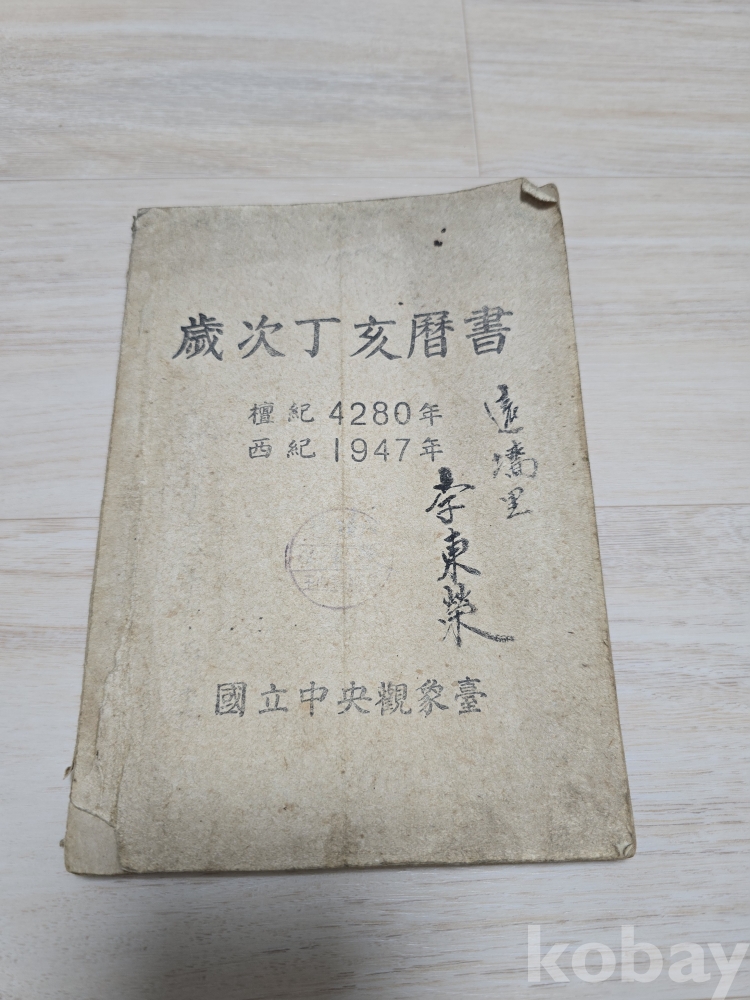 歲次丁亥曆書
檀紀 4280年
西紀 1947年
遠墻里
李東榮
國立中央觀象臺
kobay